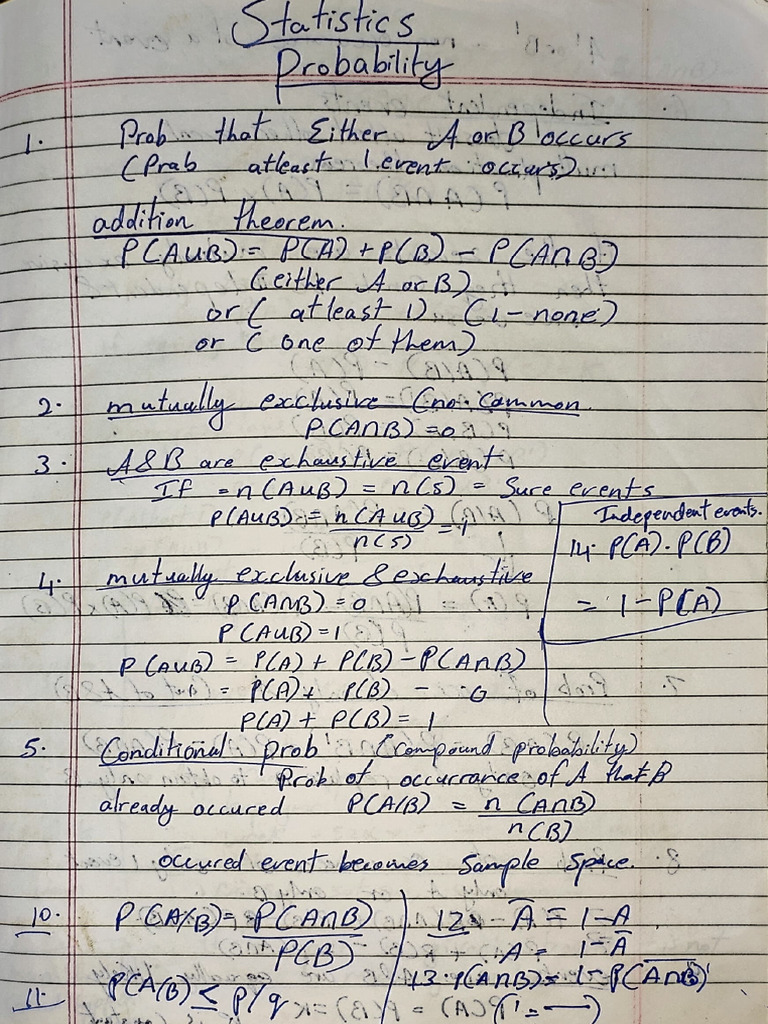 Statistics
Probability
1. Prob that Either A or B occurs
(Prab atleast 1 event occurs)
addition theorem.
P(A∪B) = P(A) + P(B) - P(A∩B)
(either A or B)
or ( atleast 1) (1 - none)
or ( one of them)
2. mutually exclusive (no common.
P(A∩B) = 0
3. A&B are exhaustive event
If = n(A∪B) = n(S) = Sure events
P(A∪B) = n(A∪B)/n(S) = 1
Independent events.
14. P(A).P(B)
= 1 - P(A)
4. mutually exclusive & exchaustive
P(A∩B) = 0
P(A∪B) = 1
P(A∪B) = P(A) + P(B) - P(A∩B)
= P(A) + P(B) - 0
P(A) + P(B) = 1
5. Conditional prob (compound probability)
Prob of occurrance of A that B
already occured P(A/B) = n(A∩B)/n(B)
occured event becomes Sample Space.
10. P(A/B) = P(A∩B)/P(B)
11. P(A(B) ≤ p/q
12. A̅ = 1 - A
A = 1 - A̅
13. P(A∩B) = 1 - P(A∩B)'